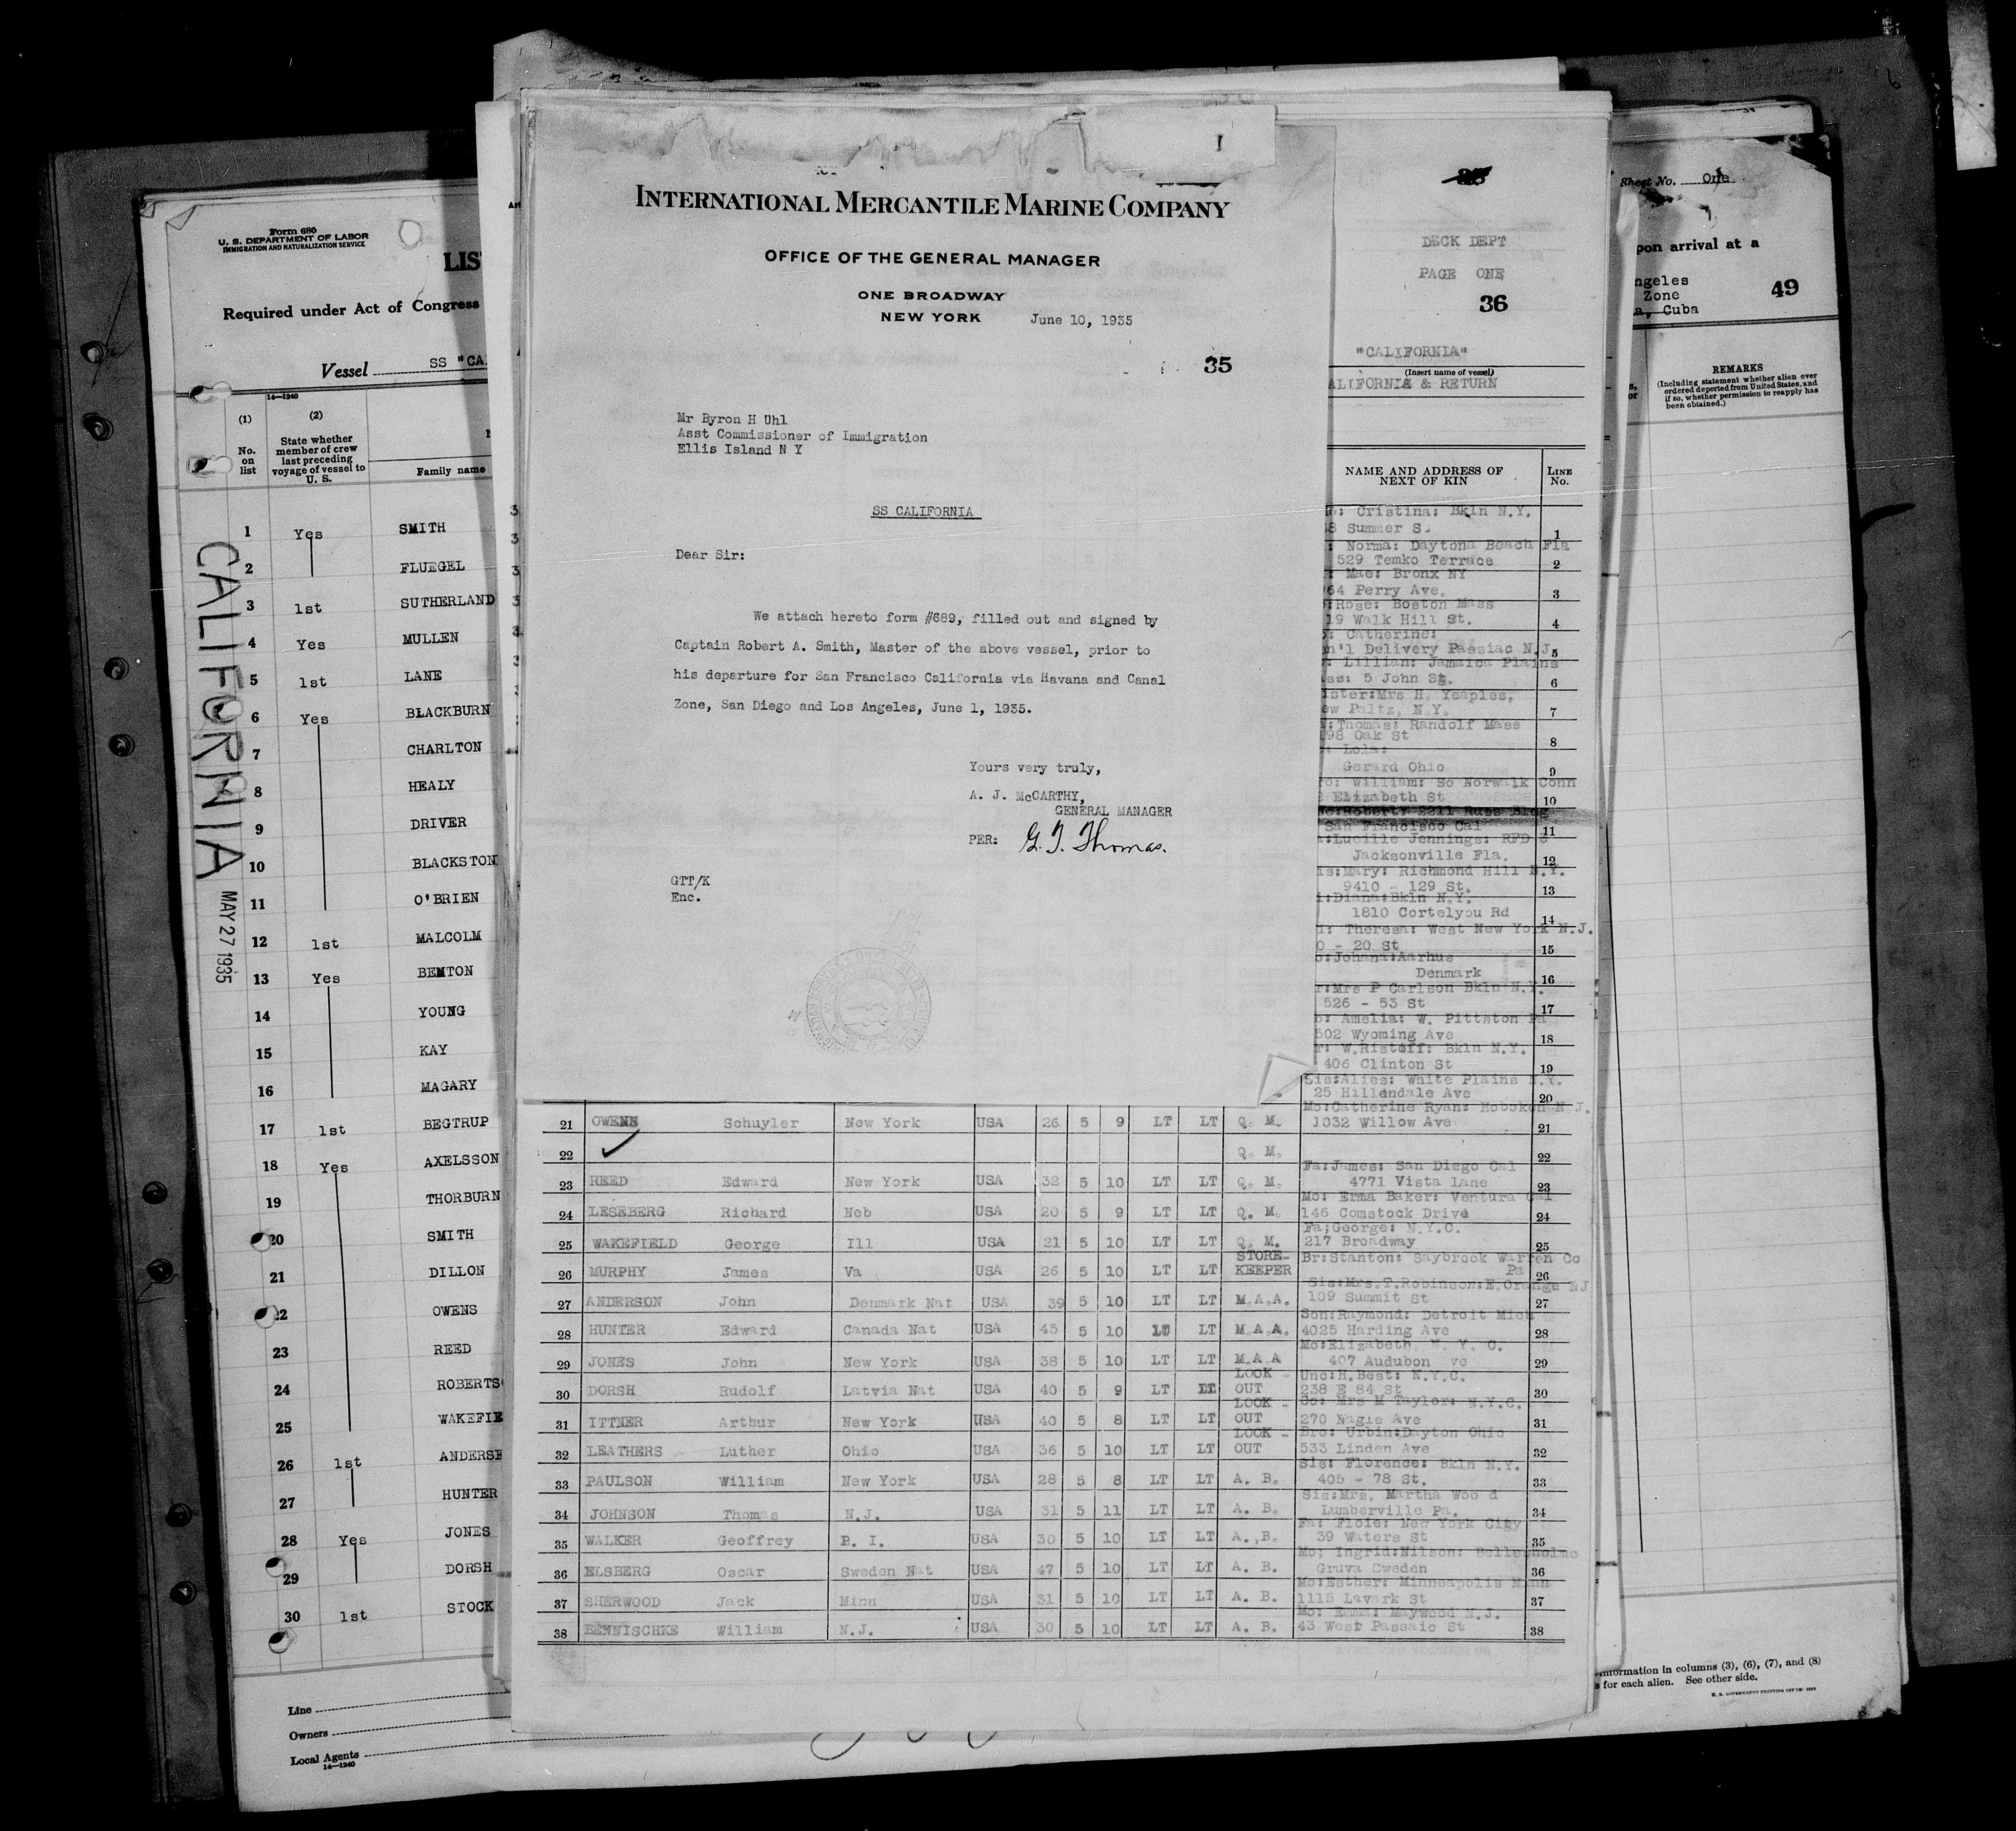 Form 680
U. S. DEPARTMENT OF LABOR
IMMIGRATION AND NATURALIZATION SERVICE
LIS
Required under Act of Congress
Vessel SS "CA
14—1240
(1) (2)
No. on list
State whether member of crew last preceding voyage of vessel to U. S.
Family name
1 Yes SMITH
2 FLUEGEL
3 1st SUTHERLAND
4 Yes MULLEN
5 1st LANE
6 Yes BLACKBURN
7 CHARLTON
8 HEALY
9 DRIVER
10 BLACKSTON
11 O'BRIEN
12 1st MALCOLM
13 Yes BENTON
14 YOUNG
15 KAY
16 MAGARY
17 1st BEGTRUP
18 Yes AXELSSON
19 THORBURN
20 SMITH
21 DILLON
22 OWENS
23 REED
24 ROBERTS
25 WAKEFIE
26 1st ANDERSE
27 HUNTER
28 Yes JONES
29 DORSH
30 1st STOCK
CALIFORNIA
MAY 27 1935
Line
Owners
Local Agents
14—1240
I
INTERNATIONAL MERCANTILE MARINE COMPANY
OFFICE OF THE GENERAL MANAGER
ONE BROADWAY
NEW YORK June 10, 1935
35
Mr Byron H Uhl
Asst Commissioner of Immigration
Ellis Island N Y
SS CALIFORNIA
Dear Sir:
We attach hereto form #689, filled out and signed by
Captain Robert A. Smith, Master of the above vessel, prior to
his departure for San Francisco California via Havana and Canal
Zone, San Diego and Los Angeles, June 1, 1935.
Yours very truly,
A. J. McCARTHY,
GENERAL MANAGER
PER: G. T. Thomas.
GTT/K
Enc.
DECK DEPT
PAGE ONE
36
"CALIFORNIA"
(Insert name of vessel)
ALIFORNIA & RETURN
NAME AND ADDRESS OF NEXT OF KIN
LINE No.
Cristina: Bkln N.Y.
8 Summer S 1
Norma: Daytona Beach Fla
529 Temko Terrace 2
Mae: Bronx NY
64 Perry Ave. 3
Rose: Boston Mass
19 Walk Hill St. 4
Catherine:
n'l Delivery Passiac N.J. 5
Lillian: Jamaica Plains
ss: 5 John St. 6
ister:Mrs H. Yeaples,
ew Paltz, N.Y. 7
Thomas: Randolf Mass
98 Oak St 8
Lola:
Gerard Ohio 9
o: William: So Norwalk Conn
Elizabeth St 10
Robert: 2211 Russ Bldg
San Francisco Cal 11
Lucille Jennings: RFD 3
Jacksonville Fla. 12
is:Mary: Richmond Hill N.Y.
9410 - 129 St. 13
Diana:Bkln N.Y.
1810 Cortelyou Rd 14
Theresa: West New York N.J.
0 - 20 St 15
Johana:Aarhus
Denmark 16
Mrs P Carlson Bkln N.Y.
526 - 53 St 17
Amelia: W. Pittston Pa
502 Wyoming Ave 18
W.Ristoff: Bkln N.Y.
406 Clinton St 19
Sis:Alies: White Plains N.Y.
25 Hillendale Ave 20
Mo:Catherine Ryan: Hoboken N.J.
21 OWENS Schuyler New York USA 26 5 9 LT LT Q. M. 1032 Willow Ave 21
22 Q. M. 22
Fa:James: San Diego Cal
23 REED Edward New York USA 32 5 10 LT LT Q. M. 4771 Vista Lane 23
Mo: Erma Baker: Ventura Cal
24 LESEBERG Richard Neb USA 20 5 9 LT LT Q. M. 146 Comstock Drive 24
Fa;George: N.Y.C.
25 WAKEFIELD George Ill USA 21 5 10 LT LT Q. M. 217 Broadway 25
STORE- Br:Stanton: Saybrook Warren Co
26 MURPHY James Va USA 26 5 10 LT LT KEEPER Pa 26
Sis:Mrs.F.Robinson:E.Orange NJ
27 ANDERSON John Denmark Nat USA 39 5 10 LT LT M.A.A. 109 Summit St 27
Son:Raymond: Detroit Mich
28 HUNTER Edward Canada Nat USA 45 5 10 LT LT M.A.A. 4025 Harding Ave 28
Mo:Elizabeth, N. Y. C.
29 JONES John New York USA 38 5 10 LT LT M.A.A 407 Audubon ve 29
LOOK - Unc:H.Best: N.Y.C.
30 DORSH Rudolf Latvia Nat USA 40 5 9 LT LT OUT 238 E 84 St 30
LOOK - Co: Mrs M Taylor: N.Y.C.
31 ITTNER Arthur New York USA 40 5 8 LT LT OUT 270 Nagle Ave 31
LOOK - Bro: Urbin:Dayton Ohio
32 LEATHERS Luther Ohio USA 36 5 10 LT LT OUT 533 Linden Ave 32
Sis: Florence: Bkln N.Y.
33 PAULSON William New York USA 28 5 8 LT LT A. B. 405 - 78 St. 33
Sis:Mrs. Martha Woo d
34 JOHNSON Thomas N.J. USA 31 5 11 LT LT A. B. Lumberville Pa. 34
Fa: Floie: New York City
35 WALKER Geoffrey B. I. USA 30 5 10 LT LT A.,B. 39 Waters St 35
Mo; Ingrid:Nilson:
36 ELSBERG Oscar Sweden Nat USA 47 5 10 LT LT A. B. Gruva Sweden 36
Mo:Esther: Minneapolis Minn
37 SHERWOOD Jack Minn USA 31 5 10 LT LT A. B. 1115 Lavark St 37
Mo: Emma: Maywood N.J.
38 BENNISCHKE William N.J. USA 30 5 10 LT LT A. B. 43 West Passaic St 38
Sheet No. One
pon arrival at a
ngeles
Zone
a, Cuba
49
REMARKS
(Including statement whether alien ever ordered deported from United States, and if so, whether permission to reapply has been obtained.)
information in columns (3), (6), (7), and (8)
for each alien. See other side.
U. S. GOVERNMENT PRINTING OFFICE: